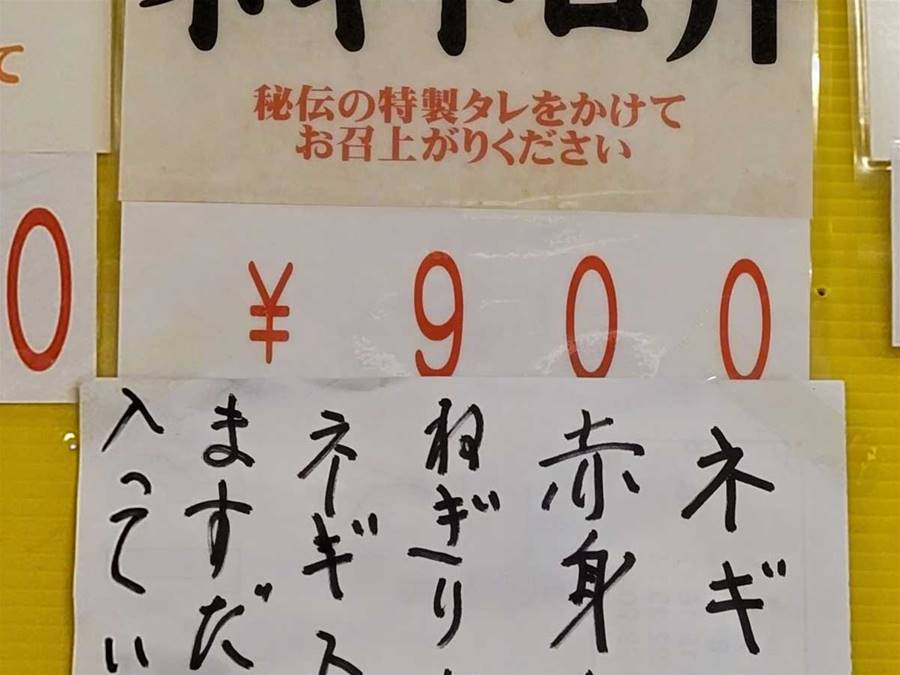 ネギトロ丼
秘伝の特製タレをかけて
お召上がりください
¥900
て
0
ネギ
赤身
ねぎり
ネギ
ますだ
入ってい